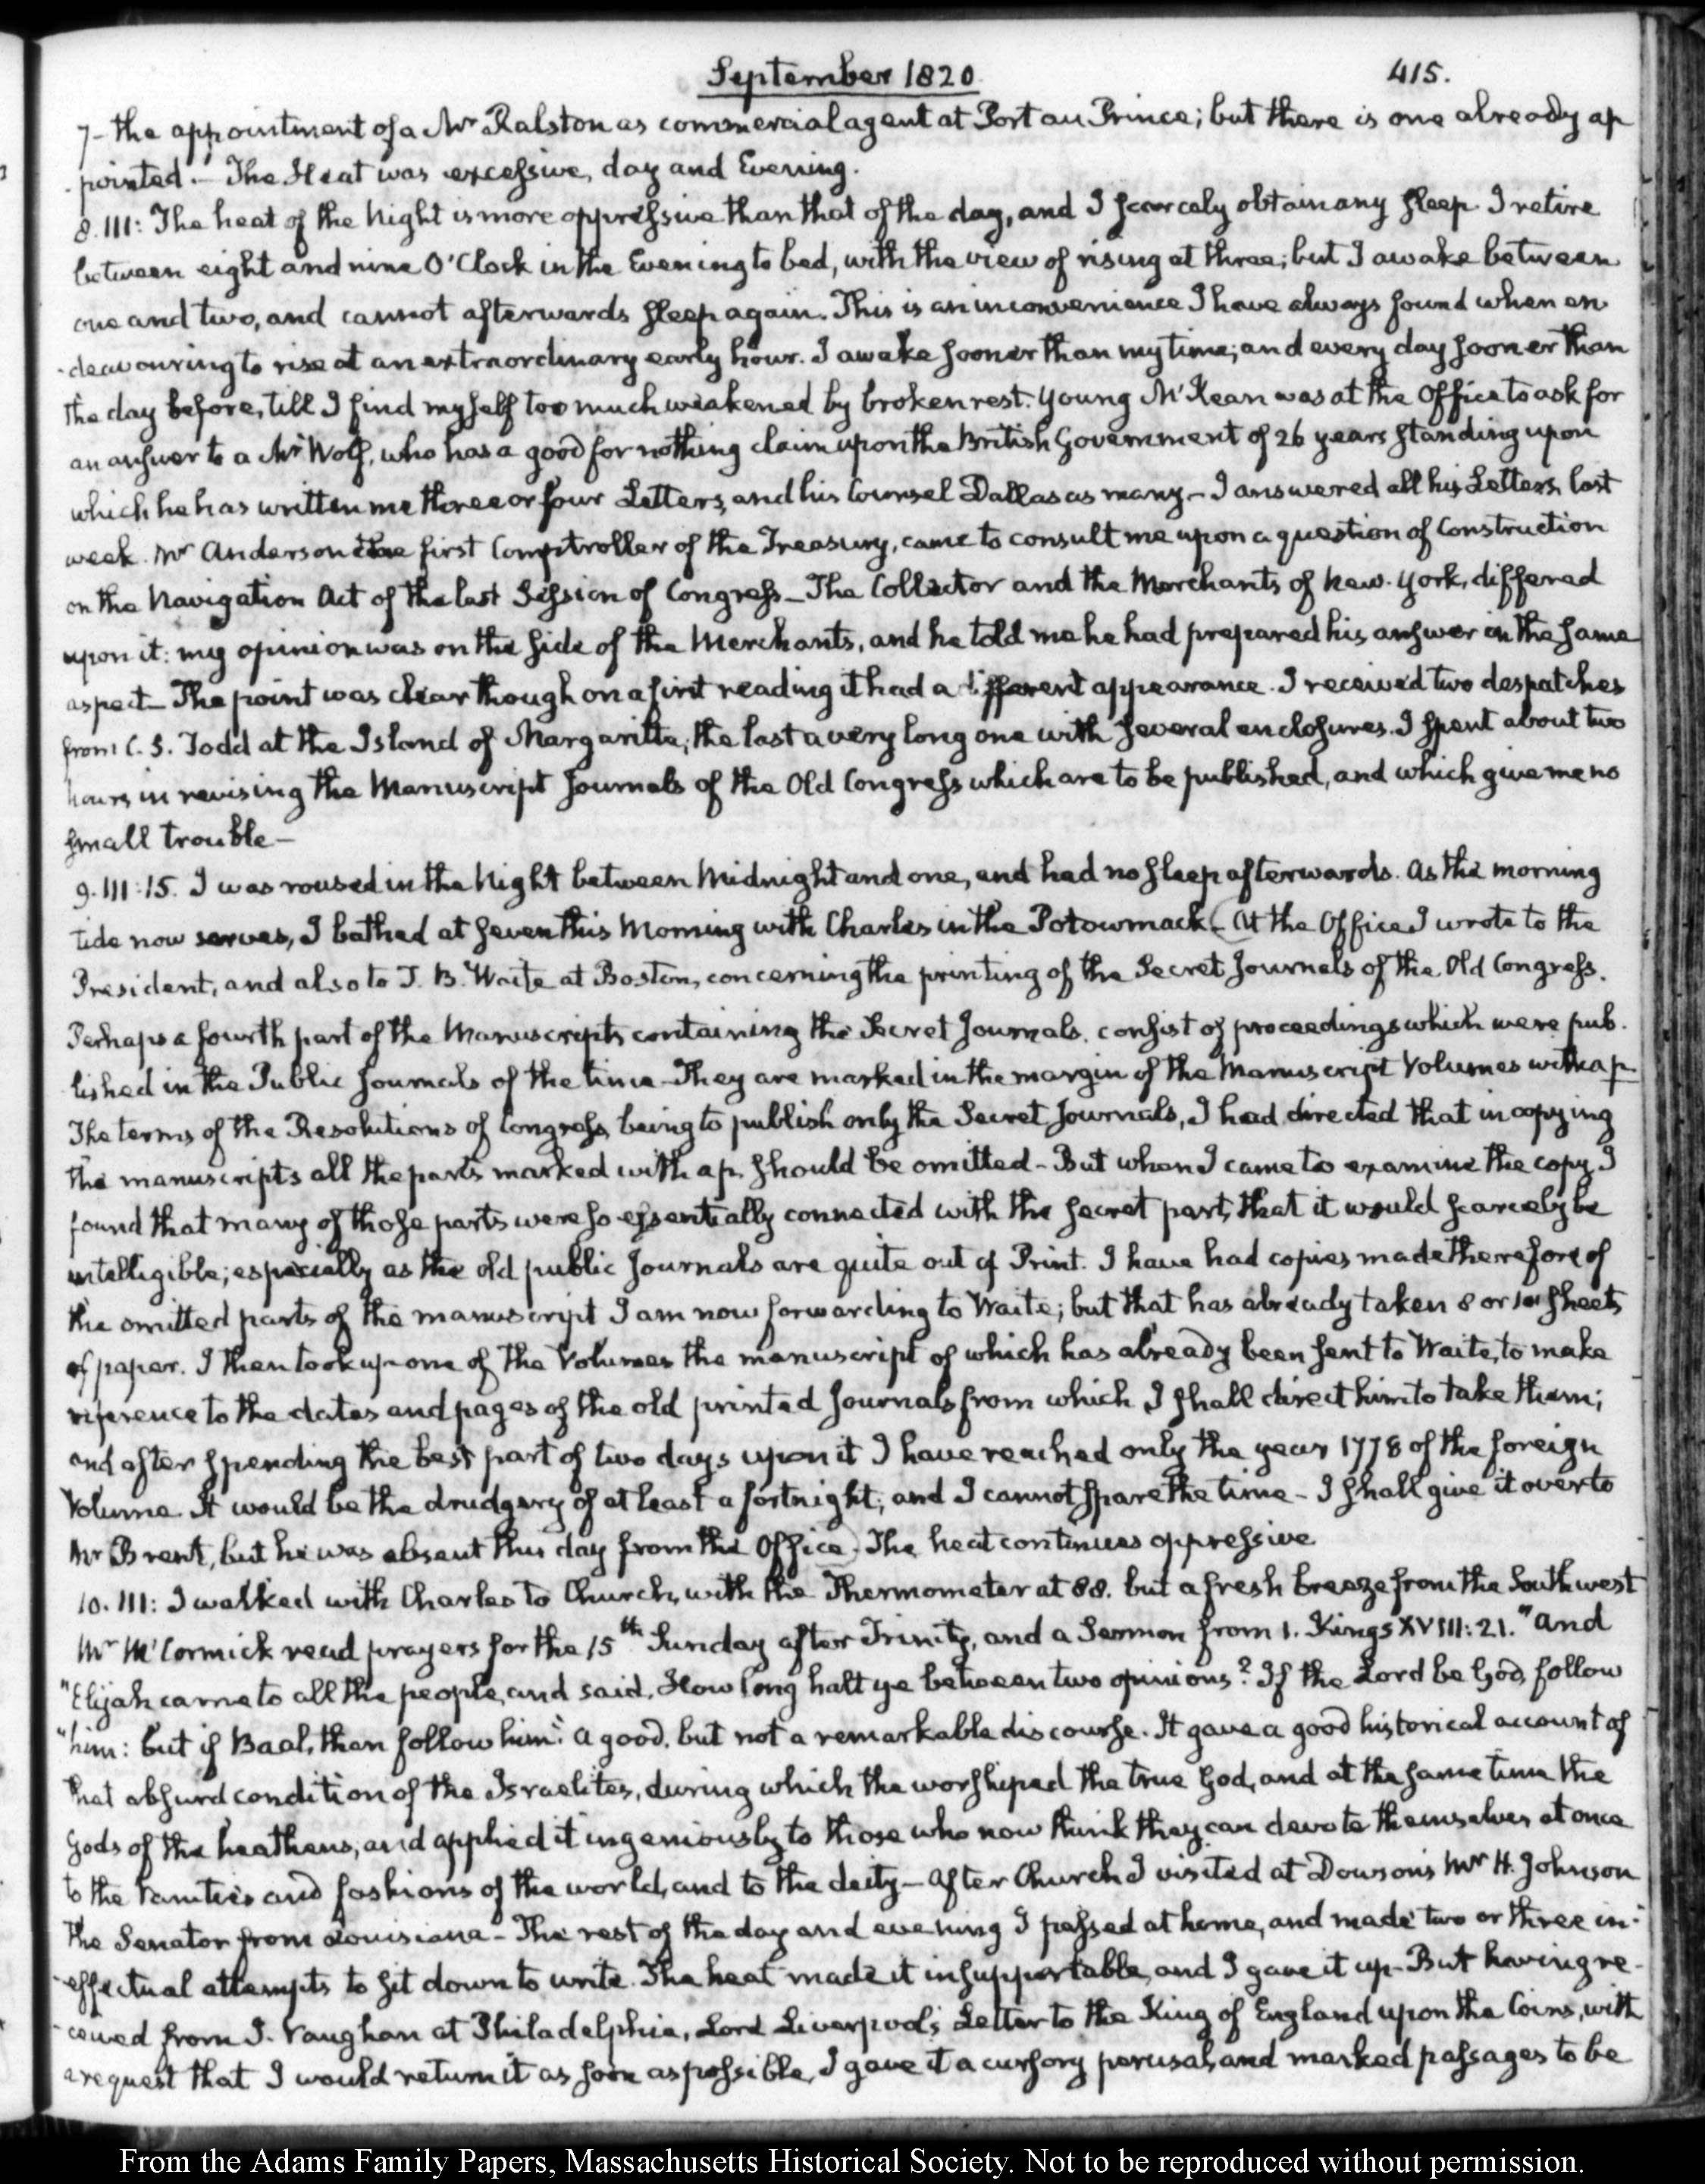 September 1820. 415.
7- the appointment of a Mr Ralston as commercial agent at Port au Prince; but there is one already ap
pointed.— The Heat was excessive, day and Evening.
8. III: The heat of the Night is more oppressive than that of the day, and I scarcely obtain any sleep. I retire
between eight and nine O'Clock in the Evening to bed, with the view of rising at three; but I awake between
one and two, and cannot afterwards sleep again. This is an inconvenience I have always found when en
-deavouring to rise at an extraordinary early hour. I awake sooner than my time; and every day sooner than
the day before, till I find myself too much weakened by broken rest. Young McKean was at the Office to ask for
an answer to a Mr Wolf, who has a good for nothing claim upon the British Government of 26 years standing upon
which he has written me three or four Letters, and his Counsel Dallas as many— I answered all his Letters last
week. Mr Anderson the first Comptroller of the Treasury, came to consult me upon a question of Construction
on the Navigation Act of the last Session of Congress— The Collector and the Merchants of New-York, differed
upon it: my opinion was on the side of the Merchants, and he told me he had prepared his answer in the same
aspect— The point was clear though on a first reading it had a different appearance. I received two despatches
from C. S. Todd at the Island of Margaritta; the last a very long one with several enclosures. I spent about two
hours in revising the Manuscript Journals of the Old Congress which are to be published, and which give me no
small trouble—
9. III:15. I was roused in the Night between Midnight and one, and had no sleep afterwards. As the morning
tide now serves, I bathed at seven this Morning with Charles in the Potowmack— (At the Office I wrote to the
President, and also to T. B. Waite at Boston, concerning the printing of the Secret Journals of the Old Congress.
Perhaps a fourth part of the Manuscripts containing the Secret Journals, consist of proceedings which were pub-
lished in the Public Journals of the time— They are marked in the margin of the Manuscript Volumes with a p.
The terms of the Resolutions of Congress being to publish only the Secret Journals, I had directed that in copying
the manuscripts all the parts marked with a p. should be omitted— But when I came to examine the copy I
found that many of those parts were so essentially connected with the secret part, that it would scarcely be
intelligible; especially as the old public Journals are quite out of Print. I have had copies made therefore of
the omitted parts of the manuscript I am now forwarding to Waite; but that has already taken 8 or 10 sheets
of paper. I then took up one of the Volumes the manuscript of which has already been sent to Waite, to make
reference to the dates and pages of the old printed Journals from which I shall direct him to take them;
and after spending the best part of two days upon it I have reached only the year 1778 of the foreign
Volume. It would be the drudgery of at least a fortnight; and I cannot spare the time— I shall give it over to
Mr Brent, but he was absent this day from the Office). The heat continues oppressive
10. III: I walked with Charles to Church, with the Thermometer at 88. but a fresh breeze from the Southwest
Mr McCormick read prayers for the 15th Sunday after Trinity, and a Sermon from 1. Kings XVIII: 21. "And
"Elijah came to all the people, and said, How long halt ye between two opinions? If the Lord be God, follow
"him: but if Baal, then follow him." A good, but not a remarkable discourse. It gave a good historical account of
that absurd condition of the Israelites, during which the worshiped the true God, and at the same time the
Gods of the heathens, and applied it ingeniously to those who now think they can devote themselves at once
to the Vanities and fashions of the world, and to the deity— After Church I visited at Dowson's Mr H. Johnson
the Senator from Louisiana— The rest of the day and evening I passed at home, and made two or three in-
-effectual attempts to sit down to write. The heat made it insupportable, and I gave it up— But having re-
-ceived from J. Vaughan at Philadelphia, Lord Liverpool's Letter to the King of England upon the Coins, with
a request that I would return it as soon as possible, I gave it a cursory perusal, and marked passages to be
From the Adams Family Papers, Massachusetts Historical Society. Not to be reproduced without permission.